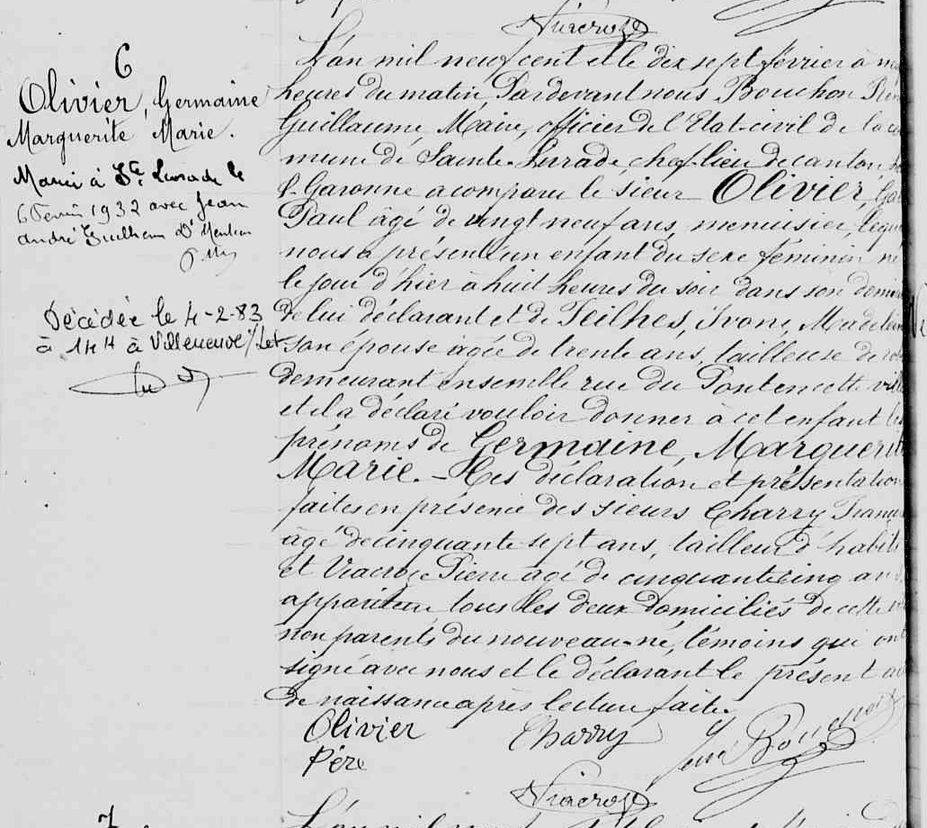 Viacroze
6
Olivier, Germaine
Marguerite, Marie.
Mariée à Ste Livrade le
6 Février 1932 avec Jean
André Guilhem
Décédée le 4-2-83
à 14H à Villeneuve/Lot
L'an mil neuf cent et le dix sept février à
heures du matin Pardevant nous Bouchon
Guillaume, Maire, officier de l'Etat-civil de la
mune de Sainte-Livrade, chef-lieu de canton
& Garonne a comparu le sieur Olivier,
Paul âgé de vingt neuf ans, menuisier, lequ
nous a présenté un enfant du sexe féminin né
le jour d'hier à huit heures du soir dans son dem
de lui déclarant et de Teilhes, Ivone, Madelei
son épouse âgée de trente ans, tailleuse de
demeurant ensemble rue du Pont en cette vil
et il a déclaré vouloir donner à cet enfant les
prénoms de Germaine, Marguerit
Marie. - Les déclaration et présentation
faites en présence des sieurs Charry Franç
âgé de cinquante sept ans, tailleur d'habits
et Viacroze Pierre agé de cinquante cinq ans
appariteur tous les deux domiciliés de cette
non parents du nouveau-né, témoins qui ont
signé avec nous et le déclarant le présent ac
de naissance après lecture faite.
Olivier Charry
Père
Viacroze
7
L'an mil